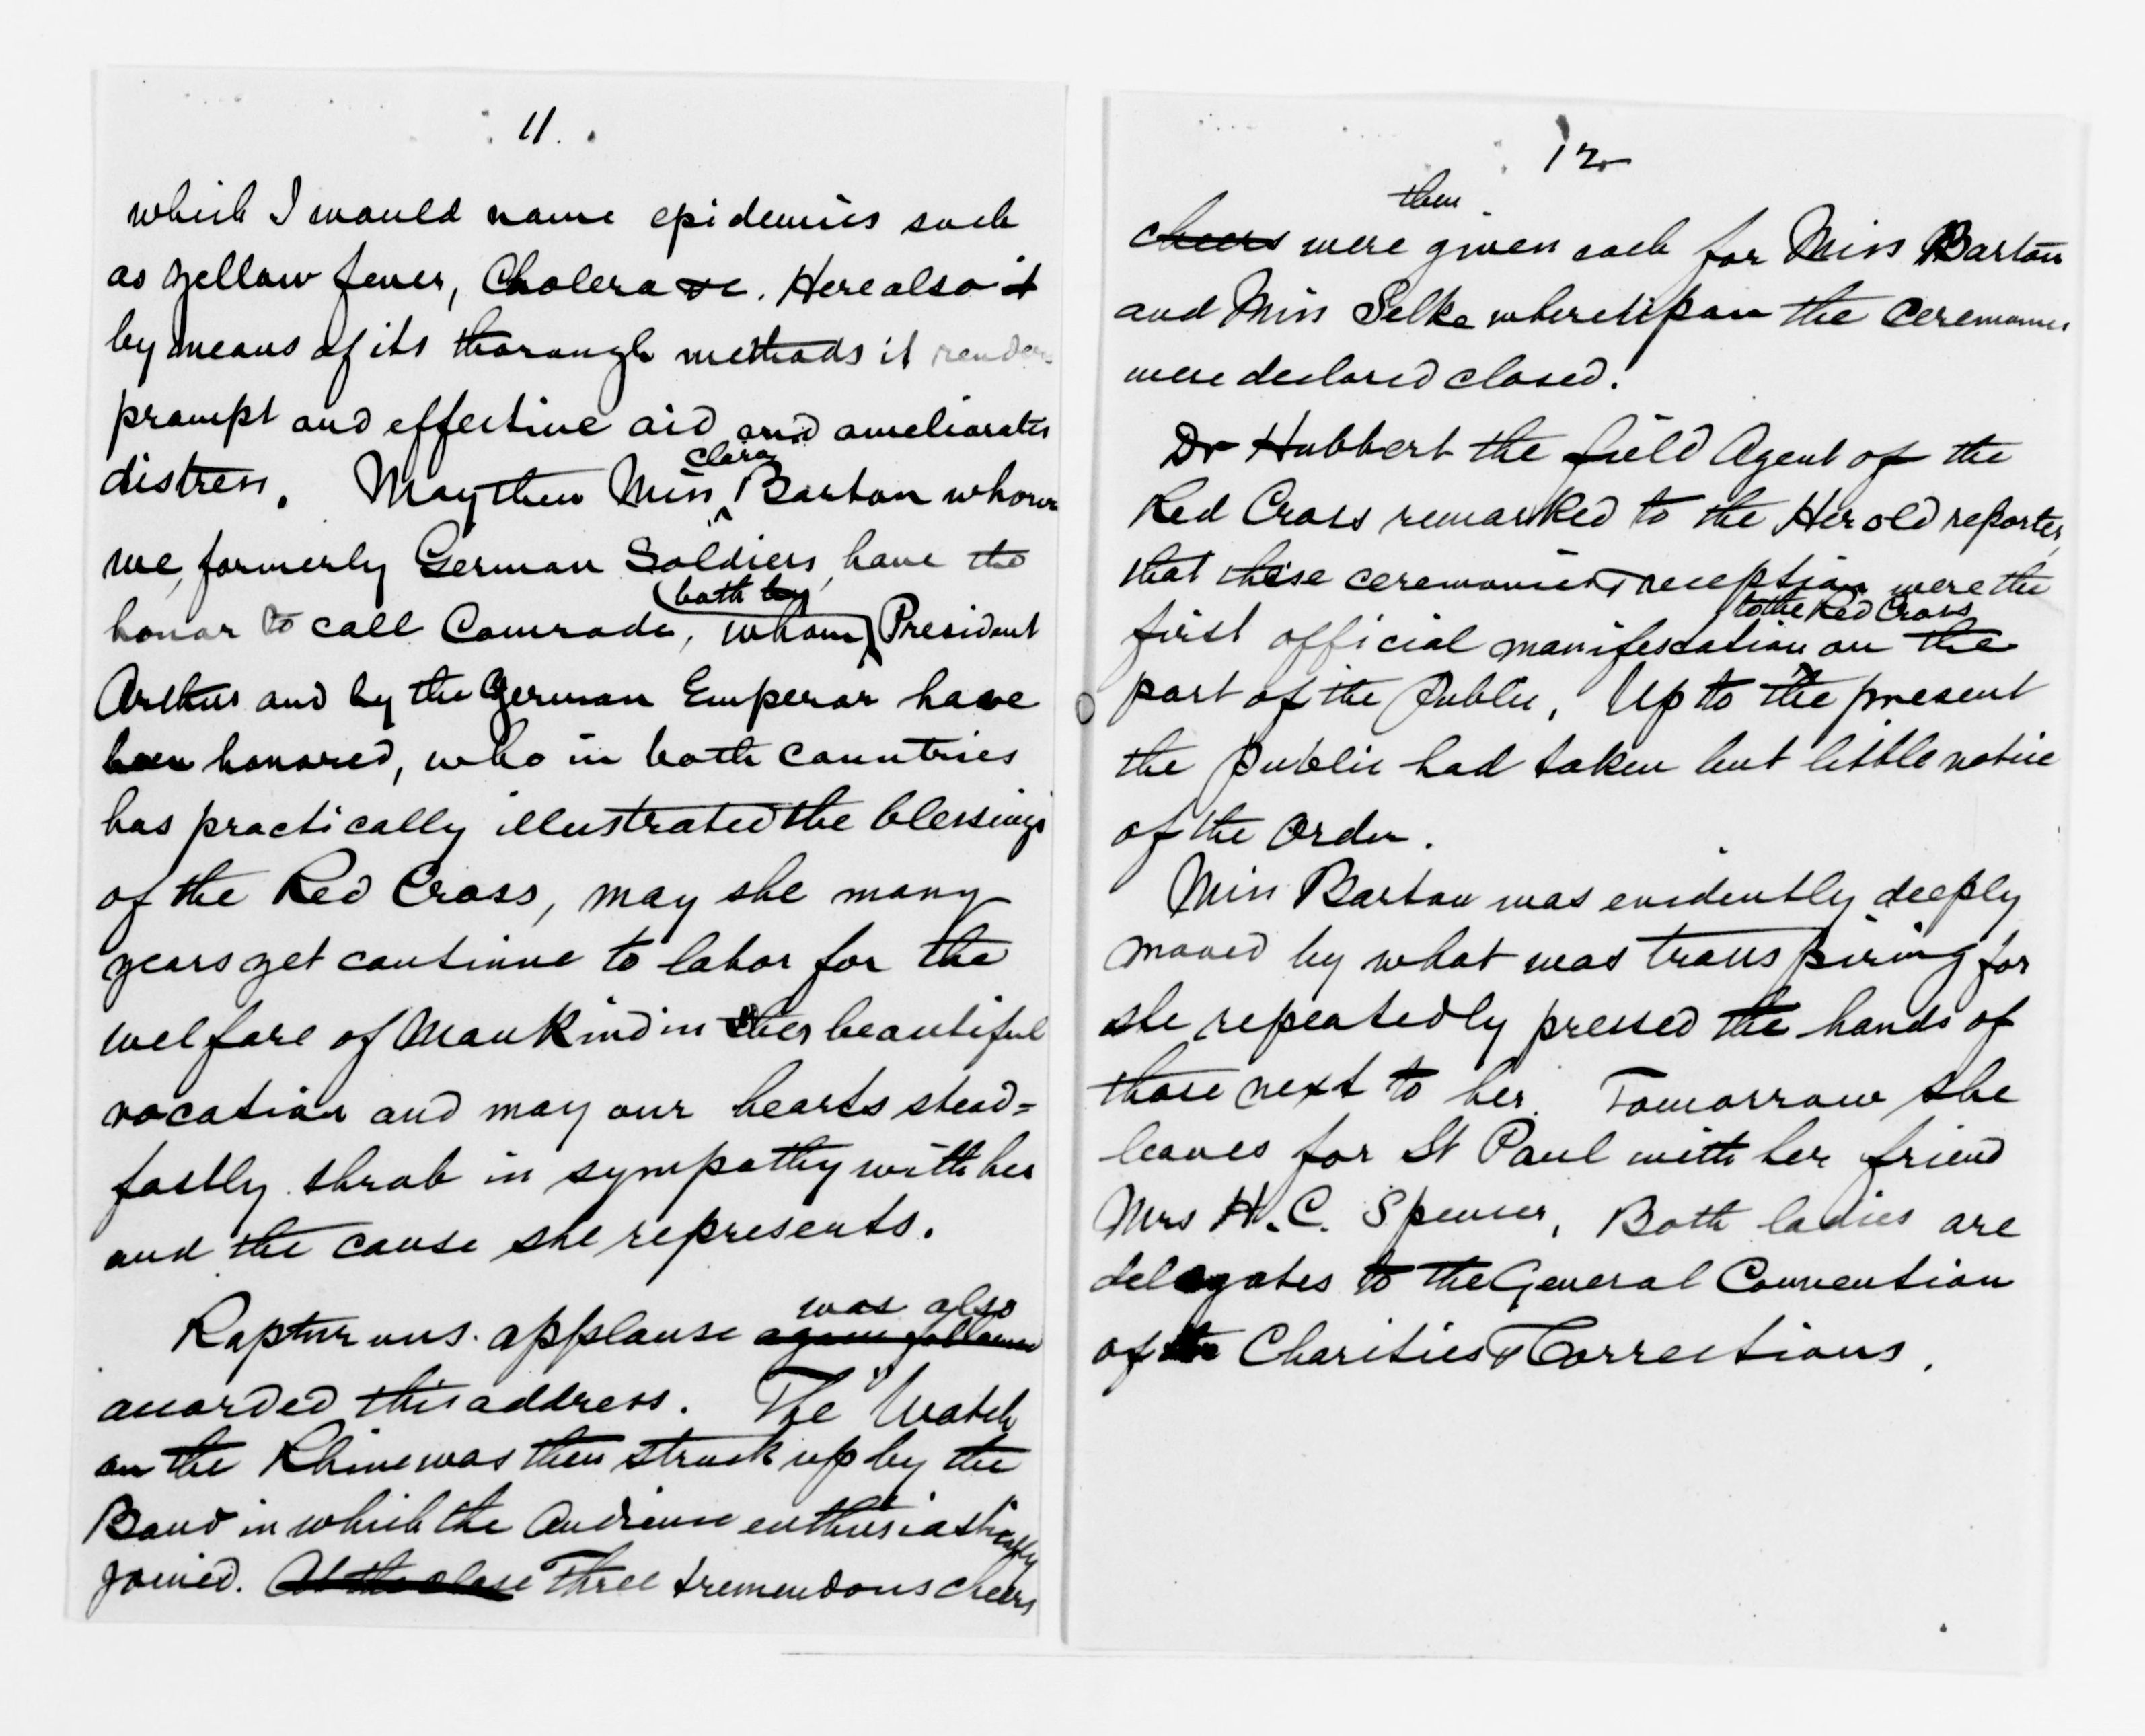 11.
which I would name epidemics such
as yellow fever, Cholera &c. Here also it
by means of its thorough methods it renders
prompt and effective aid and ameliorates
distress. May then Miss Clara Barton whom
we, formerly German Soldiers, have the
honor to call Comrade, whom both by President
Arthur and by the German Emperor have
been honored, who in both countries
has practically illustrated the blessings
of the Red Cross, may she many
years yet continue to labor for the
welfare of Mankind in her beautiful
vocation and may our hearts stead=
fastly throb in sympathy with her
and the cause she represents.
Rapturous applause again followed was also
accorded this address. The "Watch
on the Rhine was then struck up by the
Band in which the Audience enthusiastically
joined. At the close Three tremendous cheers
12
cheers were then given each for Miss Barton
and Miss Selke whereupon the ceremonies
were declared closed.
Dr Hubbert the field Agent of the
Red Cross remarked to the Herold reporter,
that these ceremonies & reception were the
first official manifestation to the Red Cross on the
part of the Public. Up to the present
the public had taken but little notice
of the Order.
Miss Barton was evidently deeply
moved by what was transpiring for
she repeatedly pressed the hands of
those next to her. Tomorrow she
leaves for St Paul with her friend
Mrs H. C. Spencer. Both ladies are
delegates to the General Convention
of the Charities & Corrections.